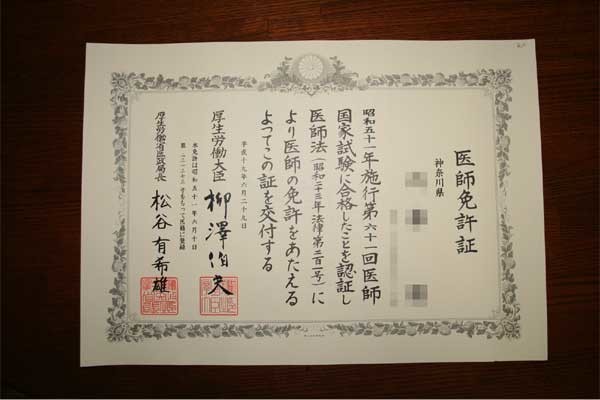 医師免許証
神奈川県
昭和五十一年施行第六十一回医師
国家試験に合格したことを認証し
医師法(昭和二十三年法律第二百一号)に
より医師の免許をあたえる
よってこの証を交付する
平成十九年六月二十九日
厚生労働大臣 柳澤伯夫
本免許は昭和五十一年六月十日
厚生労働省医政局長 松谷有希雄